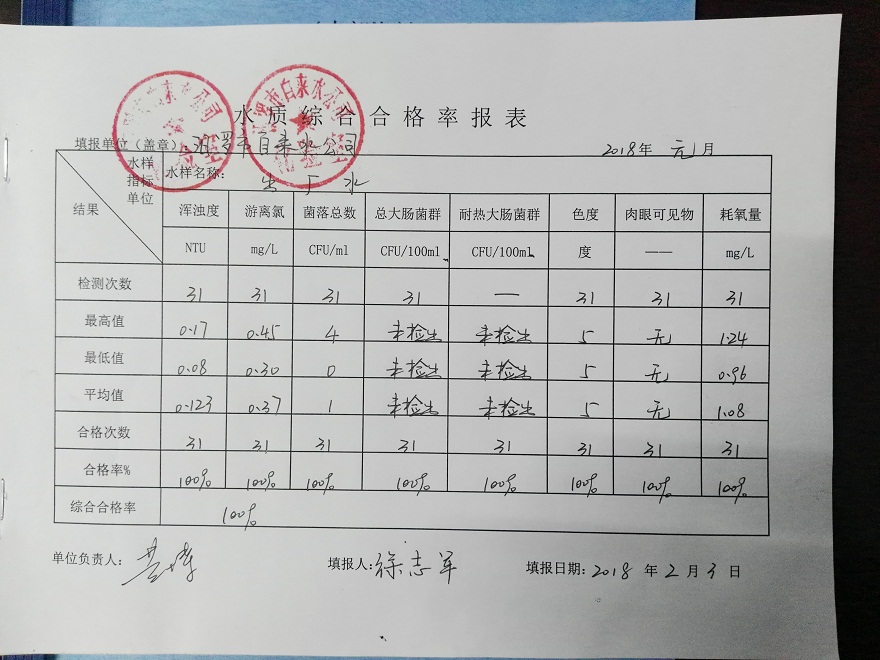 水质综合合格率报表
填报单位（盖章）：汨罗市自来水公司 2018年 元月
水样 指标 单位 结果 水样名称：出厂水
浑浊度 游离氯 菌落总数 总大肠菌群 耐热大肠菌群 色度 肉眼可见物 耗氧量
NTU mg/L CFU/ml CFU/100ml CFU/100ml 度 —— mg/L
检测次数 31 31 31 31 — 31 31 31
最高值 0.17 0.45 4 未检出 未检出 5 无 1.24
最低值 0.08 0.30 0 未检出 未检出 5 无 0.96
平均值 0.123 0.37 1 未检出 未检出 5 无 1.08
合格次数 31 31 31 31 31 31 31 31
合格率% 100% 100% 100% 100% 100% 100% 100% 100%
综合合格率 100%
单位负责人： 填报人：徐志军 填报日期：2018年2月3日